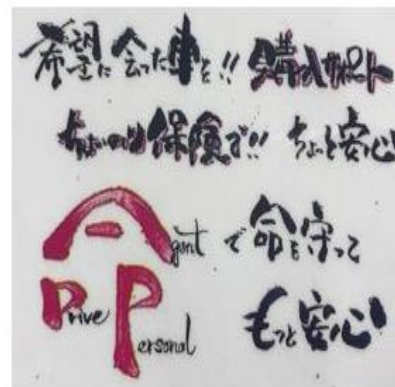 希望に会った車を!! 購入サポート
ちょいのり保険で!! ちょっと安心
Agent で命を守って
Drive Personal もっと安心